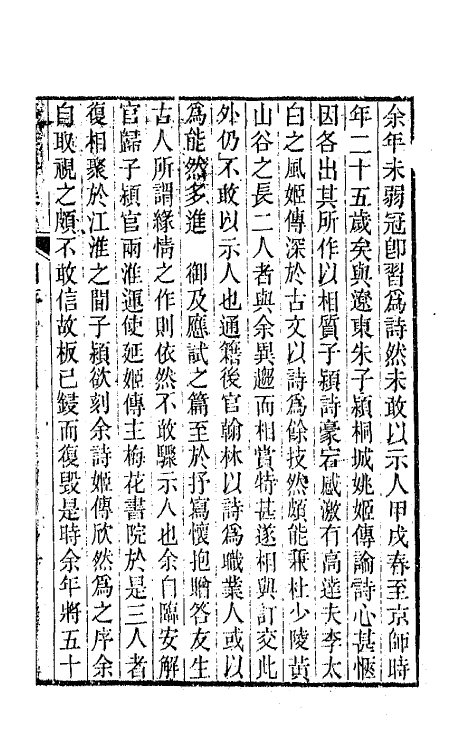 余年未弱冠卽習爲詩然未敢以示人甲戌春至京師時
年二十五歲矣與遼東朱子潁桐城姚姬傳論詩心甚愜
因各出其所作以相質子潁詩豪宕感激有高達夫李太
白之風姬傳深於古文以詩爲餘技然頗能兼杜少陵黃
山谷之長二人者與余異趣而相賞特甚遂相與訂交此
外仍不敢以示人也通籍後官翰林以詩爲職業人或以
爲能然多進 御及應試之篇至於抒寫懷抱贈答友生
古人所謂緣情之作則依然不敢驟示人也余自臨安解
官歸子潁官兩淮運使延姬傳主梅花書院於是三人者
復相聚於江淮之間子潁欲刻余詩姬傳欣然爲之序余
自取視之頗不敢信故板已鋟而復毀是時余年將五十